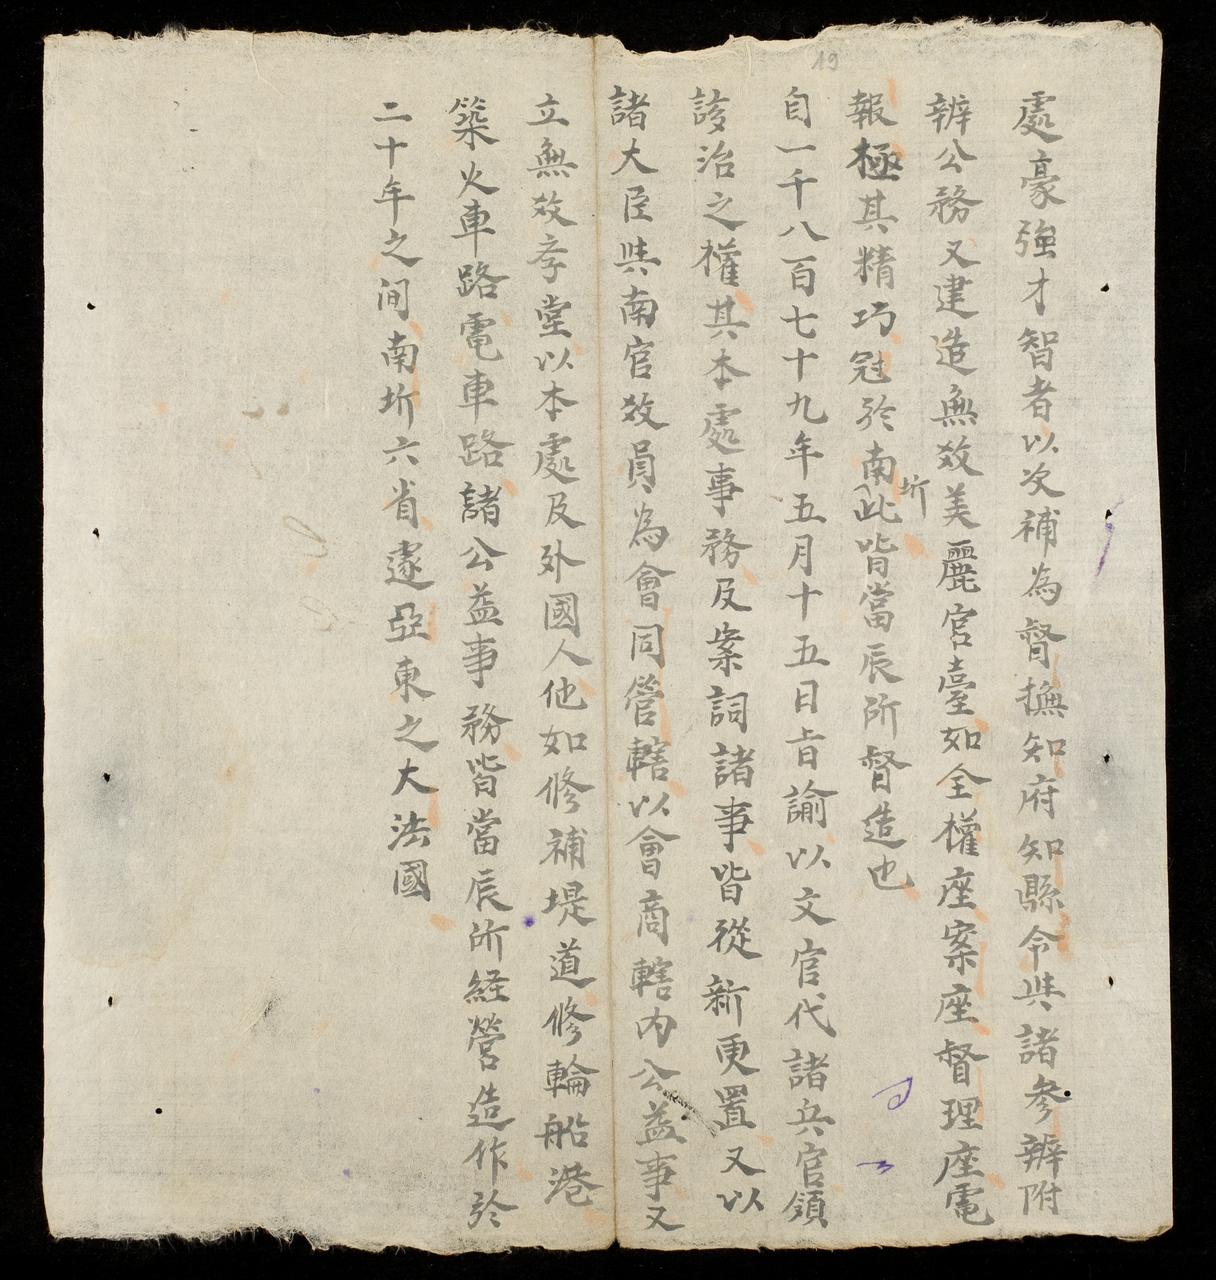 19
處豪強才智者以次補為督撫知府知縣令與諸參辨附
辨公務又建造無效美麗官臺如全權座案座督理座電
報極其精巧冠於南圻此皆當辰所督造也
自一千八百七十九年五月十五日旨諭以文官代諸兵官領
該治之權其本處事務及案詞諸事皆從新更置又以
諸大臣與南官效員為會同管轄以會商轄內公益事又
立無效孝堂以本處及外國人他如修補堤道修輪船港
築火車路電車路諸公益事務皆當辰所経營造作於
二十年之间南圻六省遂亞東之大法國